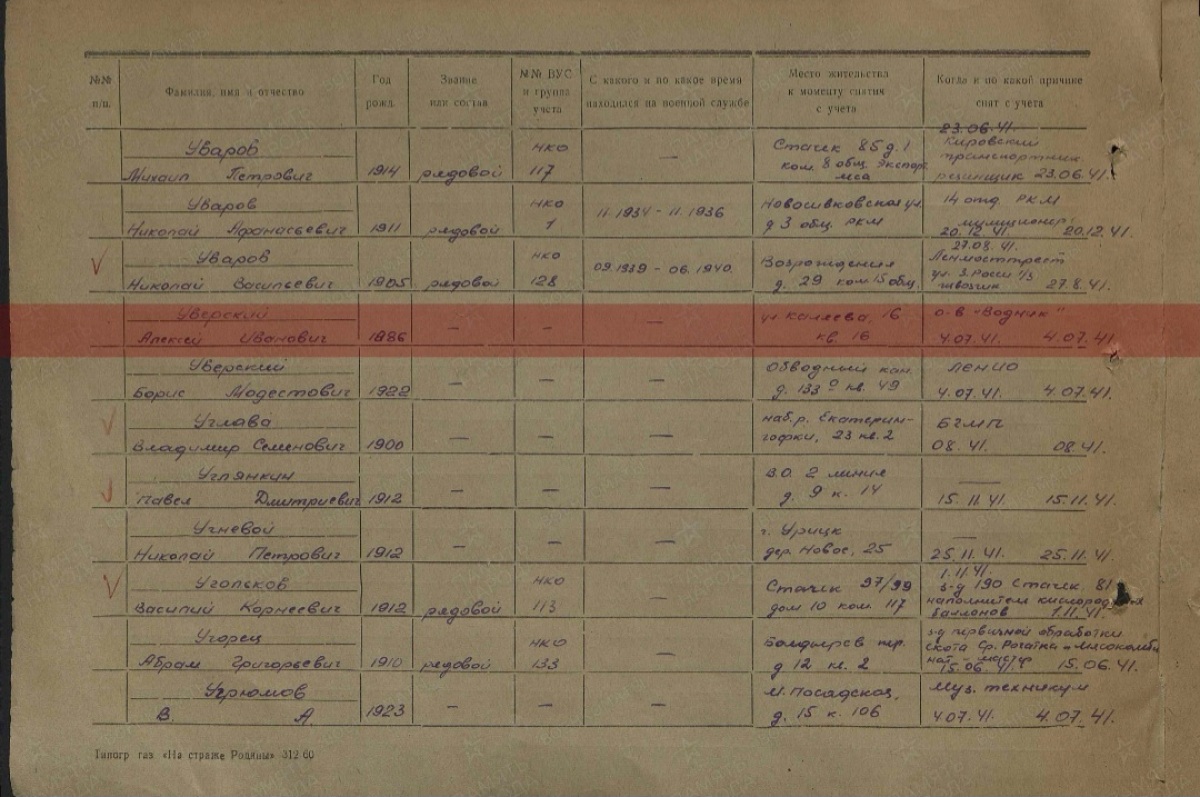 №№ п/п.
Фамилия, имя и отчество
Год рожд.
Звание или состав
№№ ВУС и группа учета
С какого и по какое время находился на военной службе
Место жительства к моменту снятия с учета
Когда и по какой причине снят с учета
Уваров
Михаил Петрович 1914 рядовой
НКО
117
—
Стачек 85 д. 1
ком. 8 общ.
23.06.41.
Кировский
23.06.41.
Уваров
Николай Афанасьевич 1911 рядовой
НКО
1
11.1934 - 11.1936
Новосивковская ул.
д 3 общ. РКМ
14 отд. РКМ
милиционер
20.12.41. 20.12.41.
Уваров
Николай Васильевич 1905 рядовой
НКО
128
09.1939 - 06.1940.
Возрождения
д. 29 ком 15 общ.
27.08.41.
Ленмосттрест
27.8.41.
Уверский
Алексей Иванович 1886
— — —
ул Каляева, 16
кв. 16
о-в "Водник"
4.07.41. 4.07.41.
Уверский
Борис Модестович 1922
— — —
Обводный кан.
д. 133 кв. 49
ЛЕНИО
4.07.41. 4.07.41.
Углава
Владимир Семенович 1900
— — —
наб. р. Екатерин-
гофки, 23 кв. 2
БГМП
08.41. 08.41.
Углянкин
Павел Дмитриевич 1912
— — —
В.О. 2 линия
д. 9 к. 14
—
15.11.41. 15.11.41.
Угневой
Николай Петрович 1912
— — —
г. Урицк
дер. Новое, 25
—
25.11.41. 25.11.41.
Угольков
Василий Корнеевич 1912 рядовой
НКО
113
—
Стачек 97/99
дом 10 ком 117
1.11.41.
з-д 190 Стачек 81
наполнител кислородных
баллонов 1.11.41.
Угорец
Абрам Григорьевич 1910 рядовой
НКО
133
—
Болдырев пер.
д 12 кв. 2
з-д первичной обработки
скота Ср. Рогатка
15.06.41. 15.06.41.
Угрюмов
В. А. 1923
— — —
М. Посадская,
д. 15 к. 106
Муз. техникум
4.07.41. 4.07.41.
Типогр. газ. «На страже Родины» 312-60